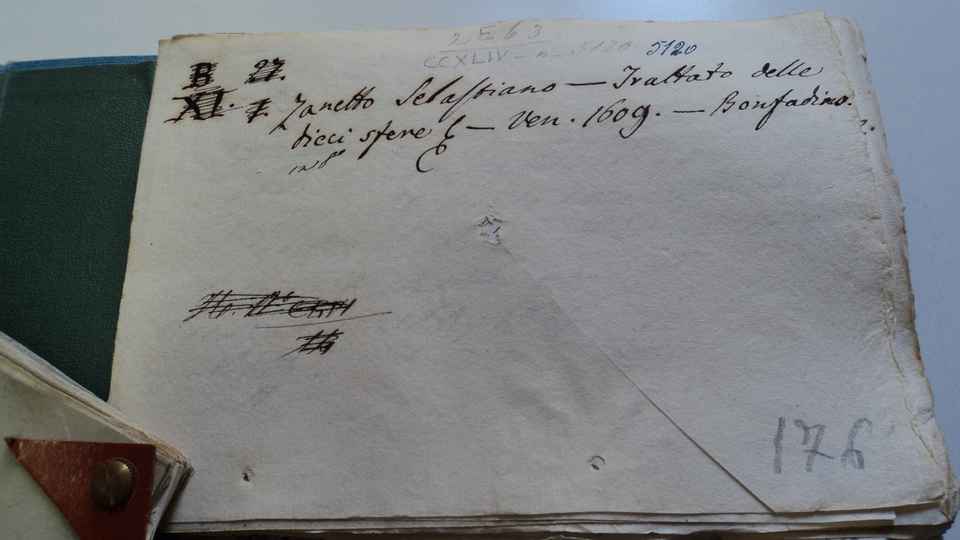 2 E 6 3
CCXLIV - n - 5120 5120
B 27.
XI. 7. Zanetto Sebastiano — Trattato delle
dieci sfere — Ven. 1609. — Bonfadino.
in 8°
176